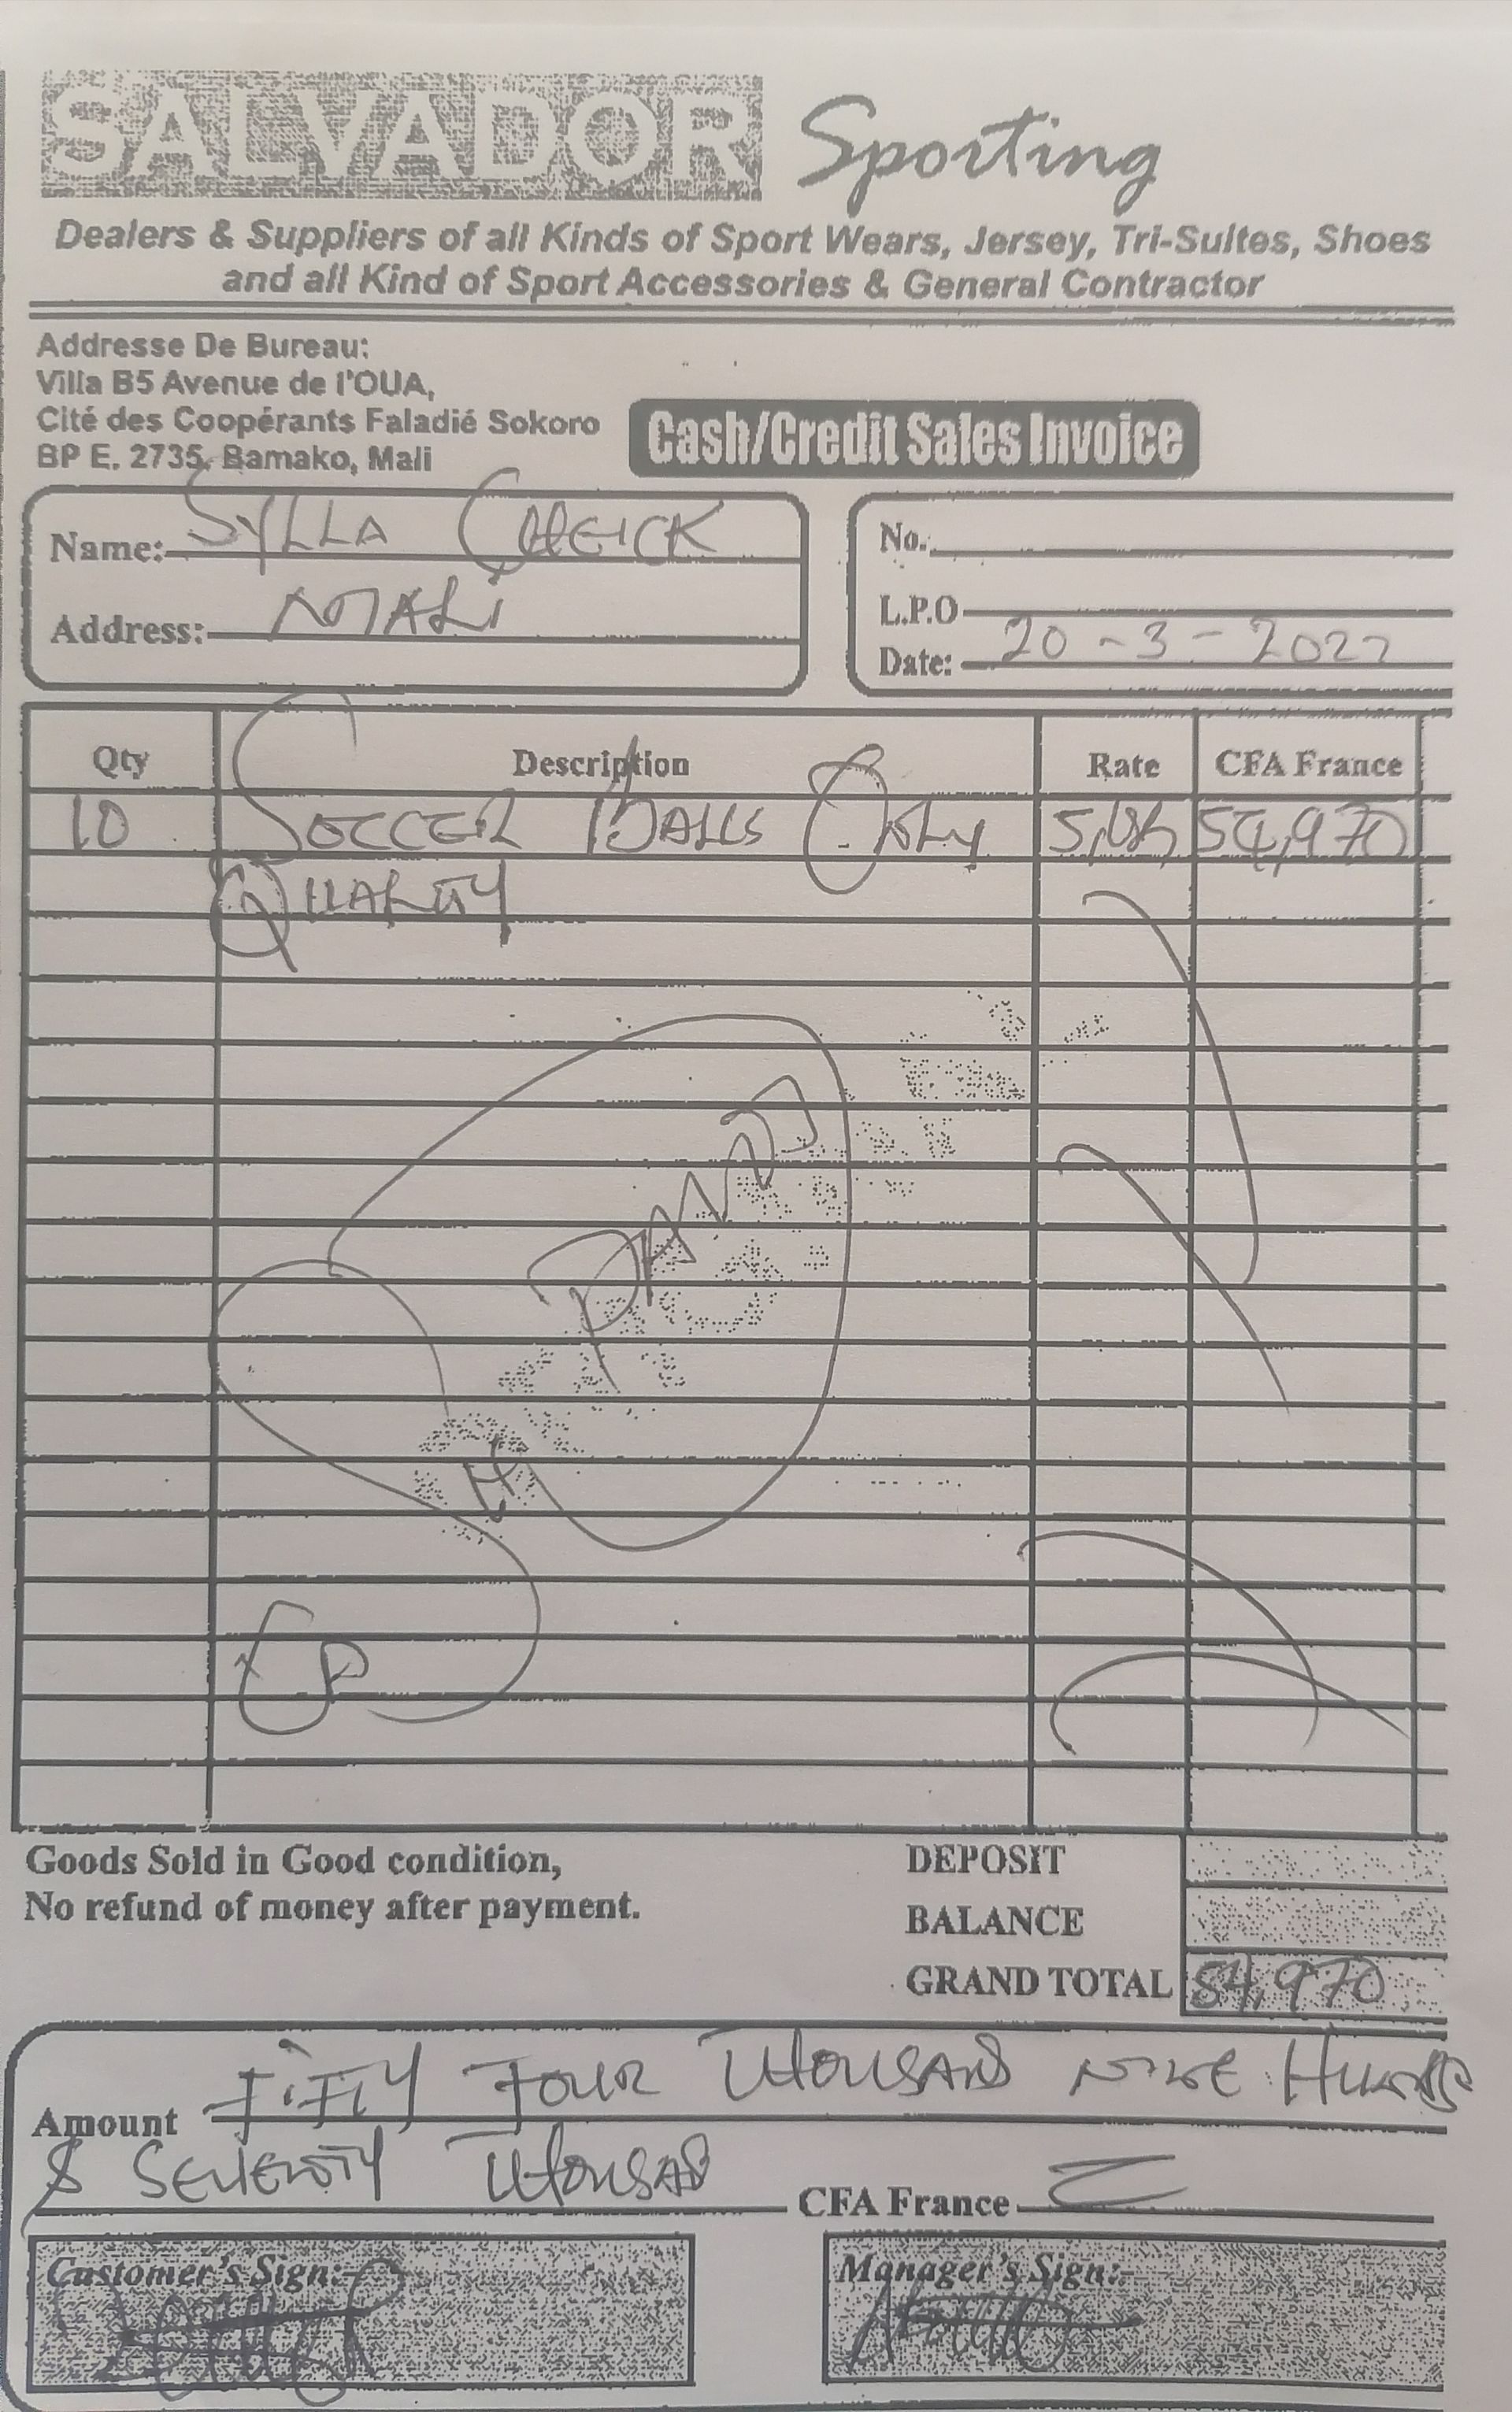 SALVADOR Sporting
Dealers & Suppliers of all Kinds of Sport Wears, Jersey, Tri-Suites, Shoes
and all Kind of Sport Accessories & General Contractor
Addresse De Bureau:
Villa B5 Avenue de l'OUA,
Cité des Coopérants Faladié Sokoro
BP E. 2735, Bamako, Mali
Cash/Credit Sales Invoice
Name: SYLLA CHEICK
Address: MALI
No.
L.P.O
Date: 20-3-2022
Qty Description Rate CFA France
10 SOCCER BALLS ONLY 54,970
QUALITY
Goods Sold in Good condition,
No refund of money after payment.
DEPOSIT
BALANCE
GRAND TOTAL 54,970
Amount FIFTY FOUR THOUSAND NINE
& SEVENTY CFA France
Customer's Sign:-
Manager's Sign:-